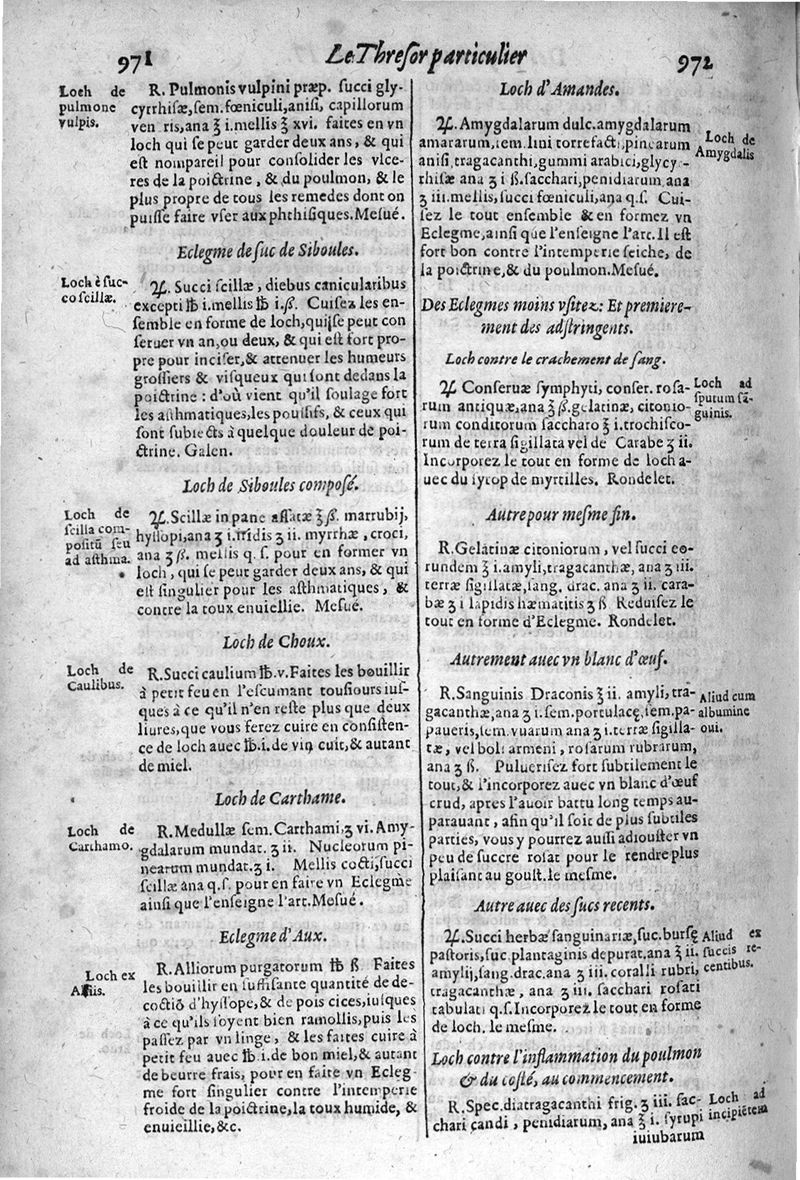 971
Le Thresor particulier
972
Loch de
pulmone
vulpis.
R. Pulmonis vulpini præp. succi gly-
cyrrhisæ, sem. fœniculi, anisi, capillorum
ven ris, ana ʒ i. mellis ℥ xvi. faites en vn
loch qui se peut garder deux ans, & qui
est nompareil pour consolider les vlce-
res de la poictrine, & du poulmon, & le
plus propre de tous les remedes dont on
puisse faire vser aux phthisiques. Mesué.
Eclegme de suc de Siboules.
Loch è suc-
co scillæ.
♃. Succi scillæ, diebus canicularibus
excepti ℔ i. mellis ℔ i. ß. Cuisez les en-
semble en forme de loch, qui se peut con
seruer vn an, ou deux, & qui est fort pro-
pre pour inciser, & attenuer les humeurs
grossiers & visqueux qui sont dedans la
poictrine: d'où vient qu'il soulage fort
les asthmatiques, les poulsifs, & ceux qui
sont subiects à quelque douleur de poi-
ctrine. Galen.
Loch de Siboules composé.
Loch de
scilla com-
positũ seu
ad asthma.
♃. Scillæ in pane assatæ ℥ ß. marrubij,
hyssopi, ana ʒ i. iridis ʒ ii. myrrhæ, croci,
ana ʒ ß. mellis q. s. pour en former vn
loch, qui se peut garder deux ans, & qui
est singulier pour les asthmatiques, &
contre la toux enuiellie. Mesué.
Loch de Choux.
Loch de
Caulibus.
R. Succi caulium ℔. v. Faites les bouillir
à petit feu en l'escumant tousiours ius-
ques à ce qu'il n'en reste plus que deux
liures, que vous ferez cuire en consisten-
ce de loch auec ℔. i. de vin cuit, & autant
de miel.
Loch de Carthame.
Loch de
Carthamo.
R. Medullæ sem. Carthami. ʒ vi. Amy-
gdalarum mundat. ʒ ii. Nucleorum pi-
nearum mundat. ʒ i. Mellis cocti, succi
scillæ ana q. s. pour en faire vn Eclegme
ainsi que l'enseigne l'art. Mesué.
Eclegme d'Aux.
Loch ex
R. Alliorum purgatorum ℔ ß Faites
les bouillir en suffisante quantité de de-
coctiõ d'hyssope, & de pois cices, iusques
à ce qu'ils soyent bien ramollis, puis les
passez par vn linge, & les faites cuire à
petit feu auec ℔. i. de bon miel, & autant
de beurre frais, pour en faire vn Ecleg-
me fort singulier contre l'intemperie
froide de la poictrine, la toux humide, &
enuieillie, &c.
Loch d'Amandes.
♃. Amygdalarum dulc. amygdalarum
amararum, sem. lini torrefacti, pinearum
anisi, tragacanthi, gummi arabici, glycy-
rhisæ ana ʒ i ß. sacchari, penidiarum ana
ʒ iii. mellis, succi fœniculi, ana q. s. Cui-
sez le tout ensemble & en formez vn
Eclegme, ainsi que l'enseigne l'art. Il est
fort bon contre l'intemperie seiche, de
la poictrine, & du poulmon. Mesué.
Loch de
Amygdalis
Des Eclegmes moins vsitez: Et premiere-
ment des adstringents.
Loch contre le crachement de sang.
♃ Conseruæ symphyti, conser. rosa-
rum antiquæ, ana ℥ ß. gelatinæ, citonio-
rum conditorum saccharo ℥ i. trochisco-
rum de terra sigillata vel de Carabe ʒ ii.
Incorporez le tout en forme de loch a-
uec du syrop de myrtilles. Rondelet.
Loch ad
sputum sã-
guinis.
Autre pour mesme fin.
R. Gelatinæ citoniorum, vel succi eo-
rundem ℥ i. amyli, tragacanthæ, ana ʒ iii.
terræ sigillatæ, sang. drac. ana ʒ ii. cara-
bæ ʒ i lapidis hæmatitis ʒ ß Reduisez le
tout en forme d'Eclegme. Rondelet.
Autrement auec vn blanc d'œuf.
R. Sanguinis Draconis ʒ ii. amyli, tra-
gacanthæ, ana ʒ i. sem. portulacę, sem. pa-
paueris, sem. vuarum ana ʒ i. terræ sigilla-
tæ, vel boli armeni, rosarum rubrarum,
ana ʒ ß. Puluerisez fort subtilement le
tout, & l'incorporez auec vn blanc d'œuf
crud, apres l'auoir battu long temps au-
parauant, afin qu'il soit de plus subtiles
parties, vous y pourrez aussi adiouster vn
peu de succre rosat pour le rendre plus
plaisant au goust. le mesme.
Aliud cum
albumine
oui.
Autre auec des sucs recents.
♃. Succi herbæ sanguinariæ, suc. bursę
pastoris, suc. plantaginis depurat. ana ℥ ii.
amylij, sang. drac. ana ʒ iii. coralli rubri,
tragacanthæ, ana ʒ iii. sacchari rosati
tabulati q. s. Incorporez le tout en forme
de loch. le mesme.
Aliud ex
succis re-
centibus.
Loch contre l'inflammation du poulmon
& du costé, au commencement.
R. Spec. diatragacanthi frig. ʒ iii. sac-
chari candi, penidiarum, ana ℥ i. syrupi
Loch ad
incipiẽtem
iuiubarum